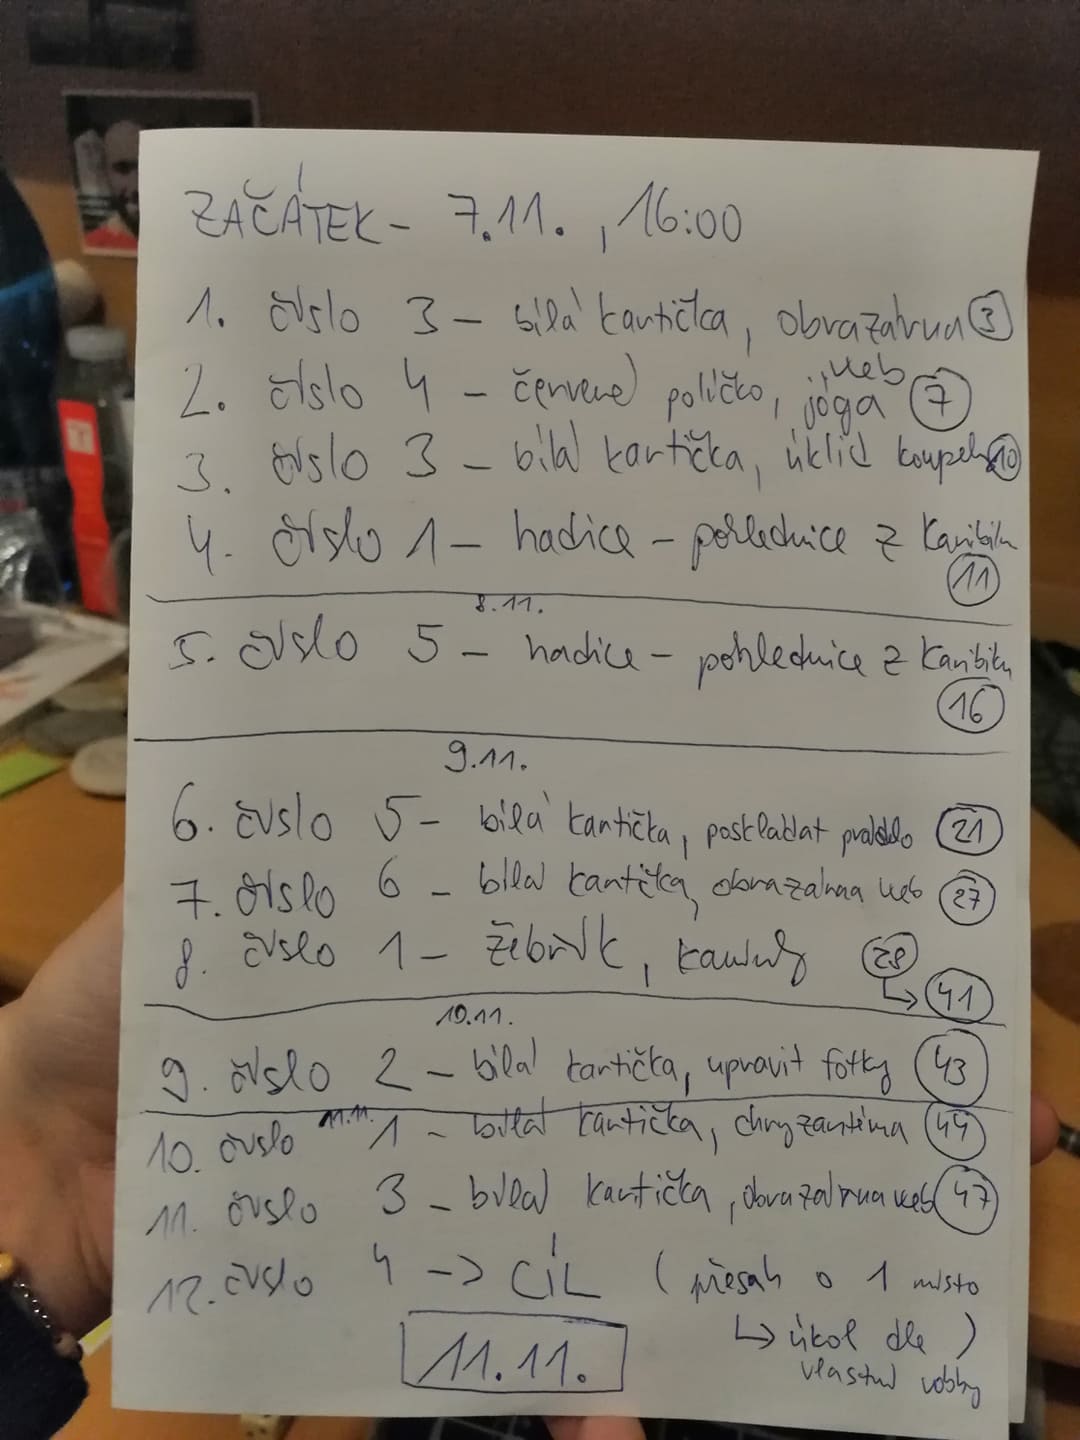 ZAČÁTEK - 7.11., 16:00
1. číslo 3 - bílá kartička, obrazárna web 3
2. číslo 4 - červené políčko, jóga 7
3. číslo 3 - bílá kartička, úklid koupelny 10
4. číslo 1 - hadice - pohlednice z Karibiku
11
8.11.
5. číslo 5 - hadice - pohlednice z Karibiku
16
9.11.
6. číslo 5 - bílá kartička, poskládat prádlo 21
7. číslo 6 - bílá kartička, obrazárna web 27
8. číslo 1 - žebřík, 28
↳ 41
10.11.
9. číslo 2 - bílá kartička, upravit fotky 43
11.11.
10. číslo 1 - bílá kartička, chryzantéma 44
11. číslo 3 - bílá kartička, obrazárna web 47
12. číslo 4 -> CÍL (přesah o 1 místo
↳ úkol dle )
vlastní volby
11.11.